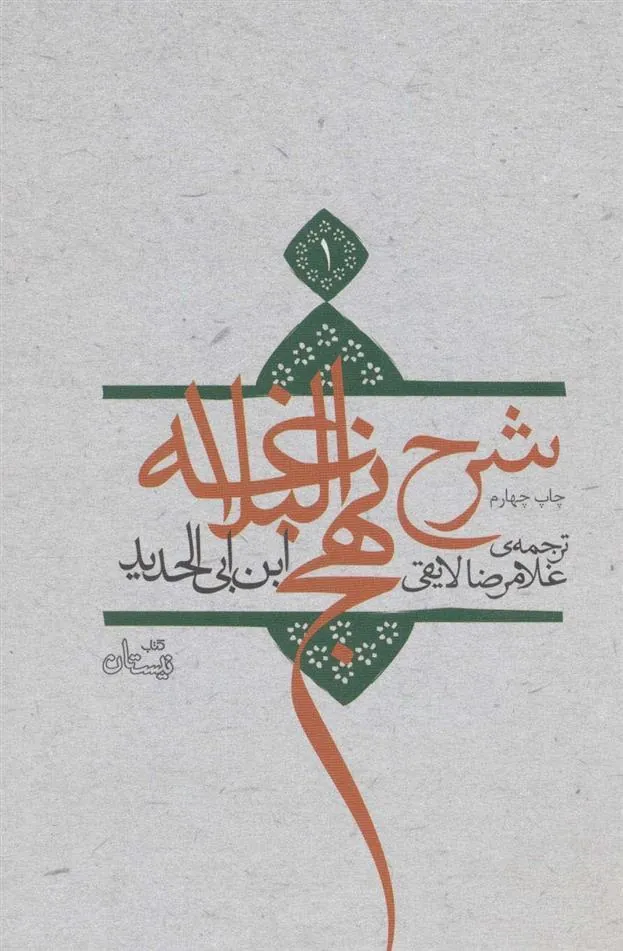 ۱
شرح نهج البلاغه
چاپ چهارم
ابن ابی الحدید
ترجمه‌ی
غلامرضا لایقی
کتاب
نیستان